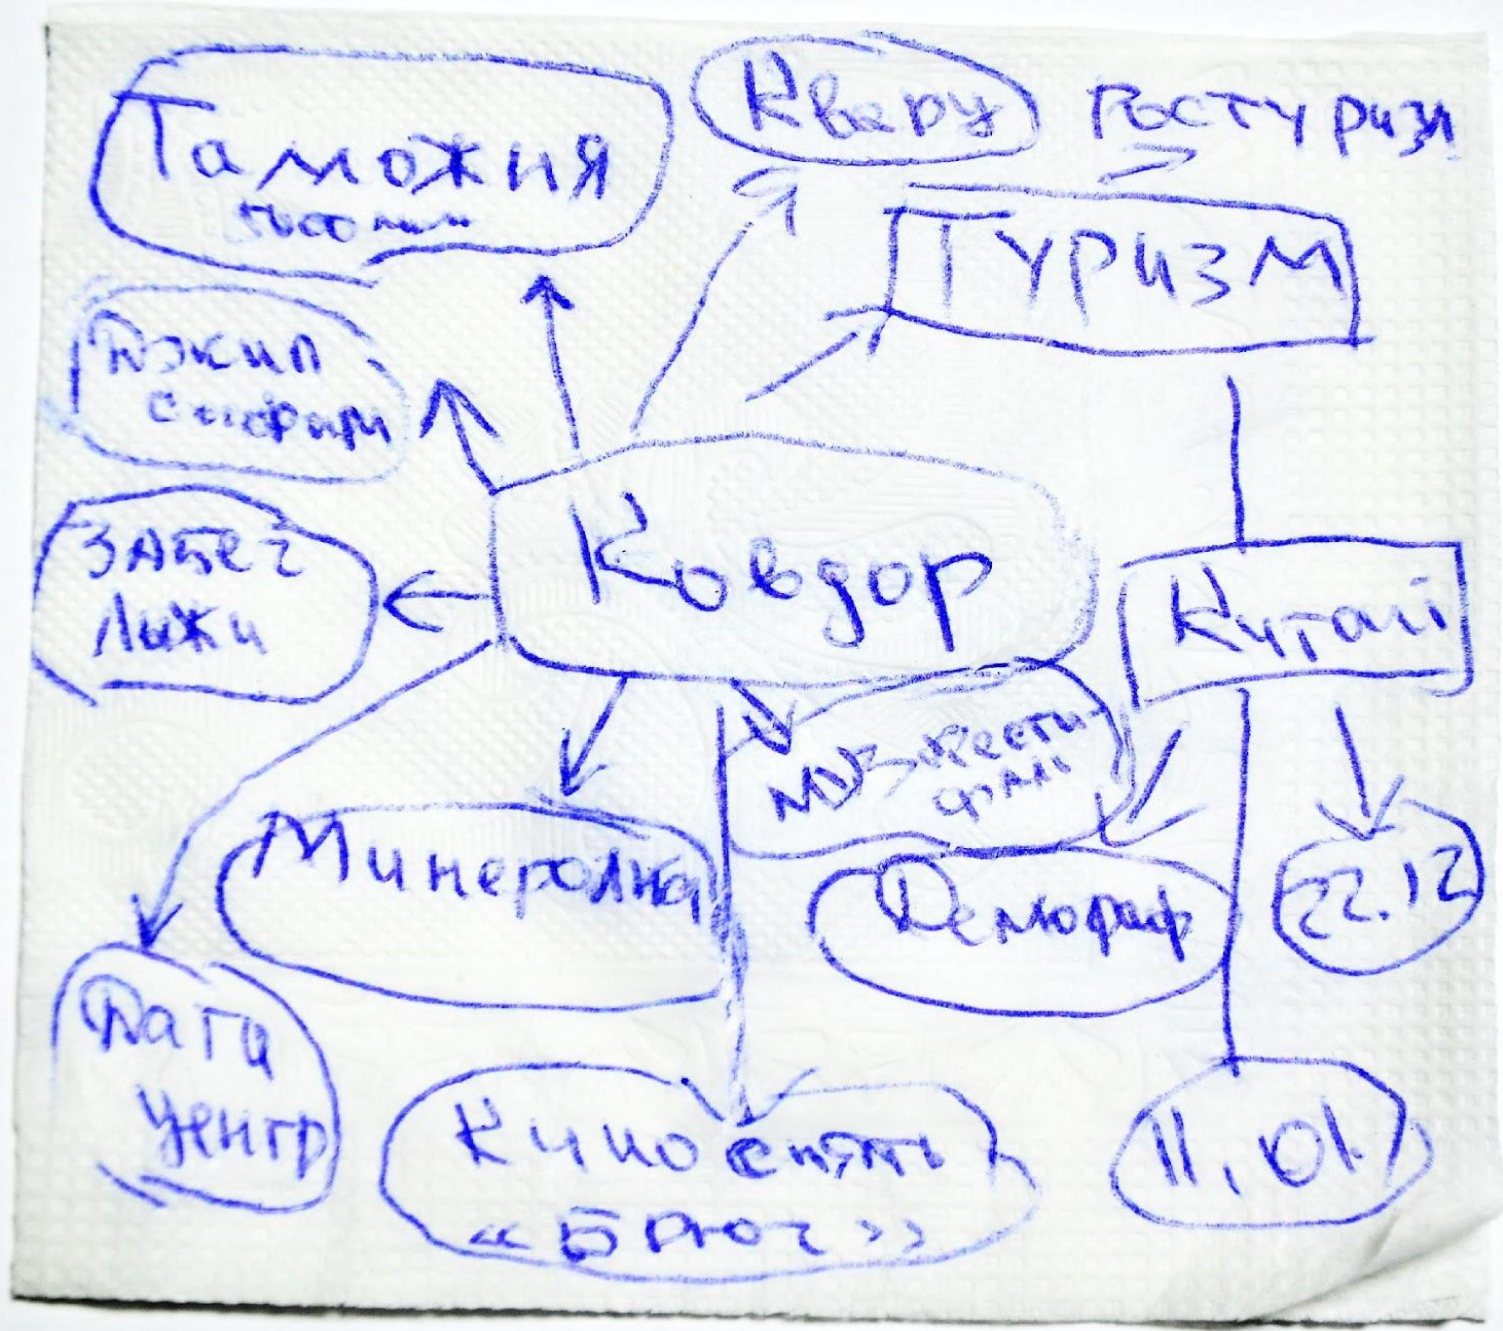 Таможня
5000 млн
Кверу
Ростуризм
Туризм
Джип
сафари
Забег
Лыжи
Ковдор
Китай
Муз фести-
валь
Минералка
Демограф
22.12
Дата
центр
Кино снять
«Брюс»
11.01